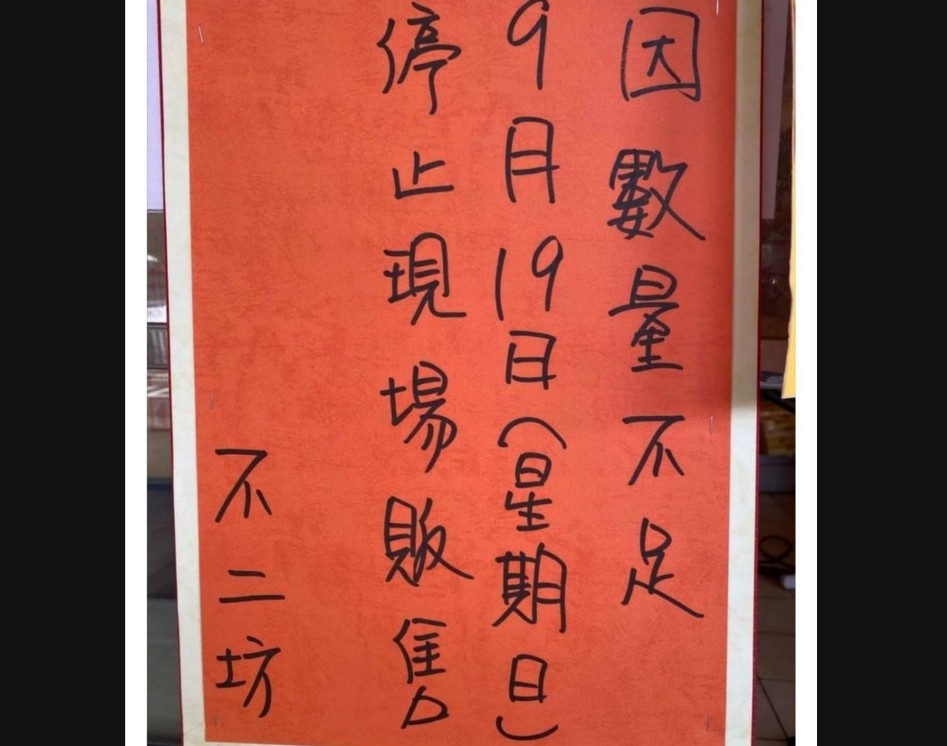 因數量不足
9月19日(星期日)
停止現場販售
不二坊